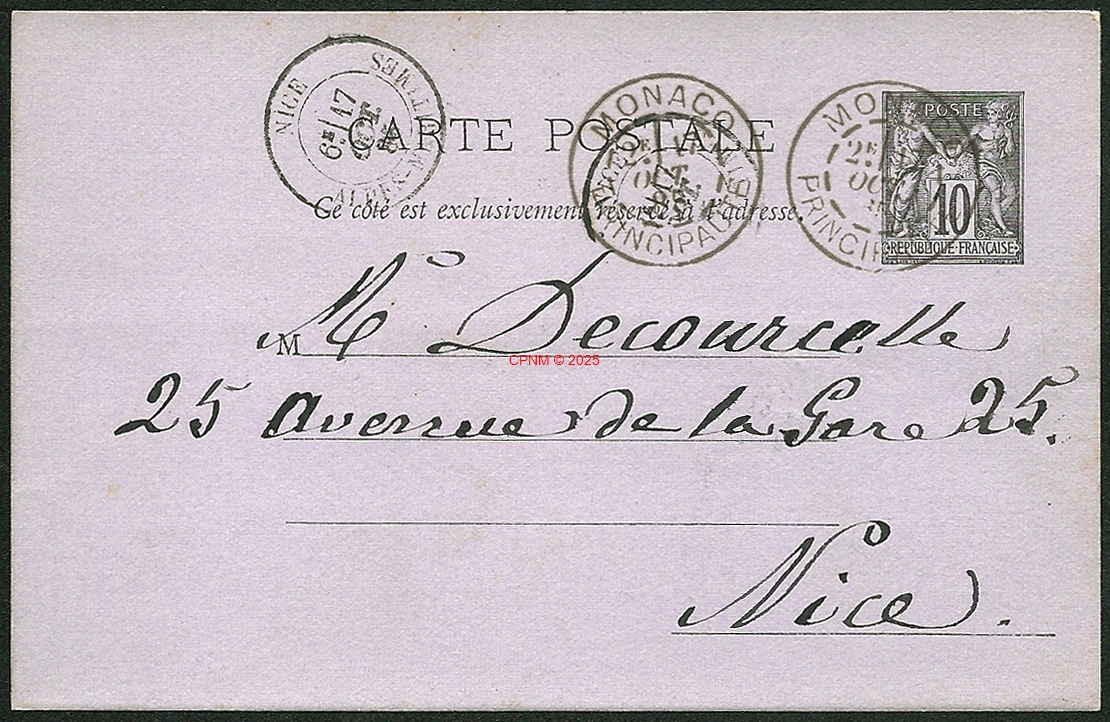 NICE
6E 17
OCT
ALPES-MARITIMES
MONACO
PRINCIPAUTÉ
MO
2E
OCT
PRINCIP
POSTE
10
REPUBLIQUE FRANÇAISE
CARTE POSTALE
Ce côté est exclusivement réservé à l'adresse.
M Mr Decourcelle
CPNM © 2025
25 Avenue de la Gare 25.
Nice.